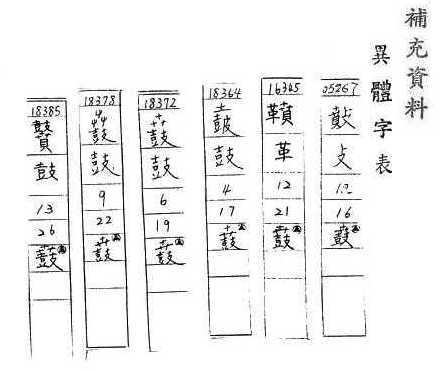 補充資料
異體字表
05267
攴
12
16
鼖
16345
革
12
21
鼖
18364
鼓
4
17
鼖
18372
鼓
6
19
鼖
18378
鼓
9
22
鼖
18385
鼓
13
26
鼖